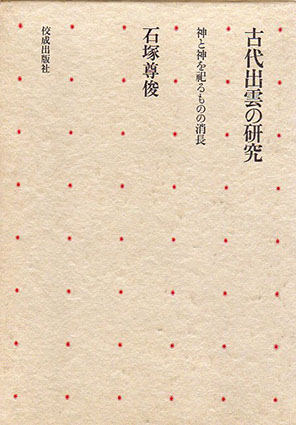 古代出雲の研究
神と神を祀るものの消長
石塚尊俊
佼成出版社